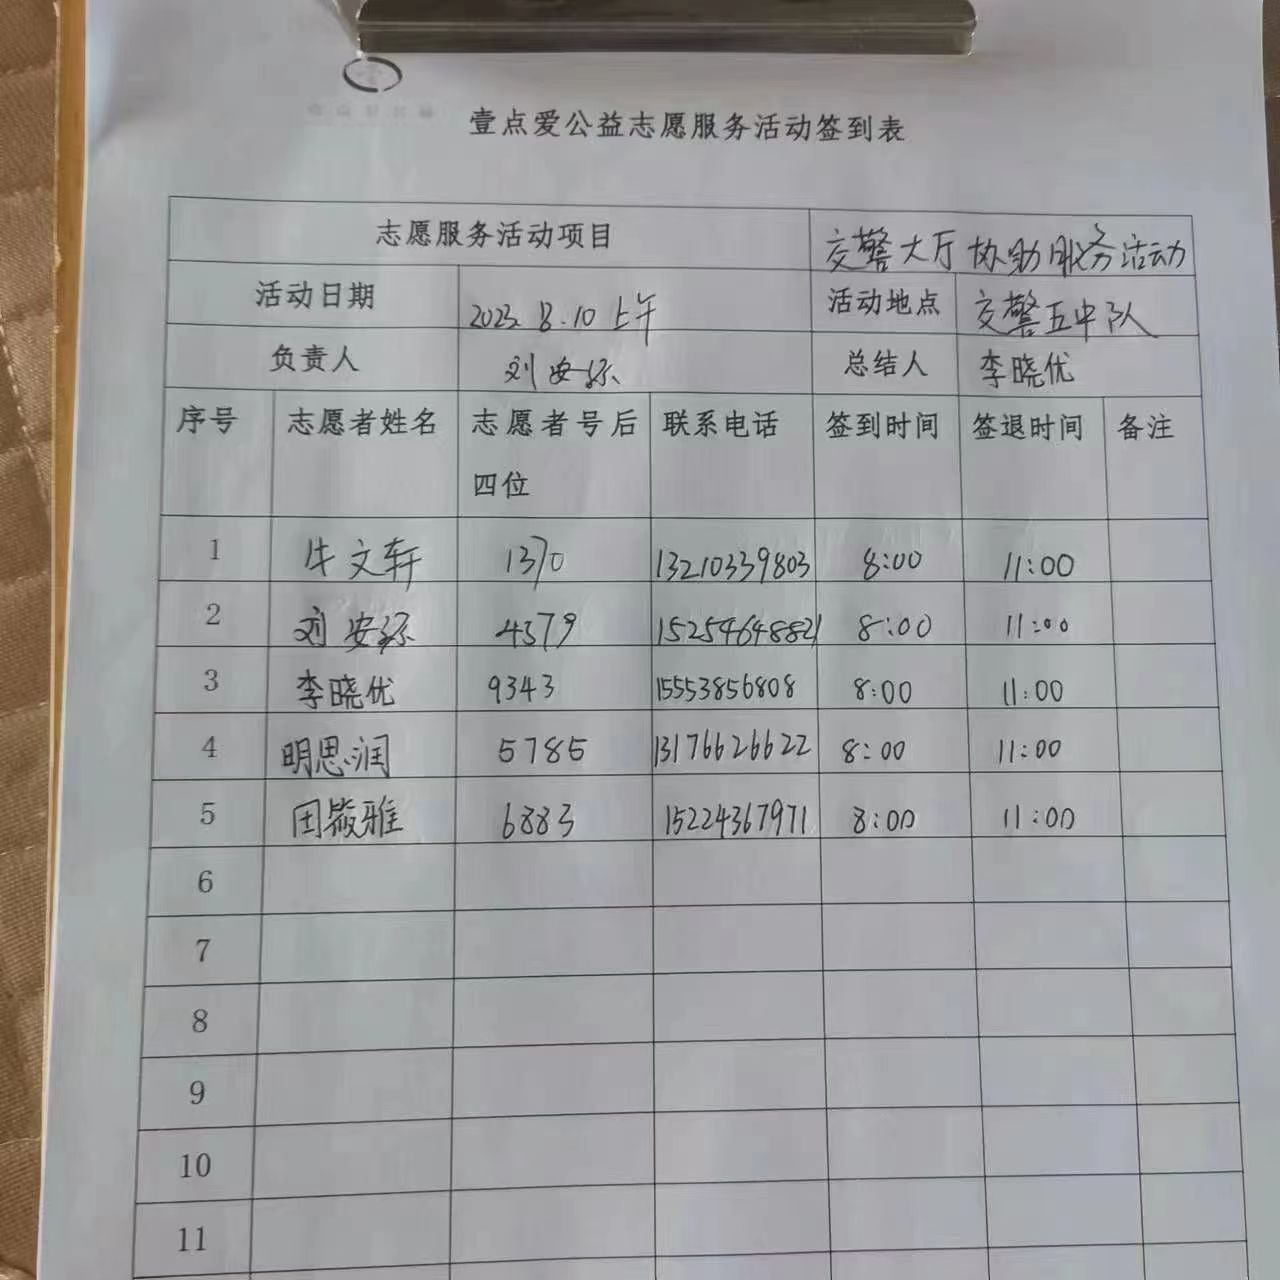 壹点爱公益志愿服务活动签到表
志愿服务活动项目 交警大厅协助服务活动
活动日期 2023.8.10上午 活动地点 交警五中队
负责人 刘安 总结人 李晓优
序号 志愿者姓名 志愿者号后四位 联系电话 签到时间 签退时间 备注
1 牛文轩 1370 13210339803 8:00 11:00
2 刘安 4379 15254648821 8:00 11:00
3 李晓优 9343 15553856808 8:00 11:00
4 明思润 5785 13176626622 8:00 11:00
5 田筱雅 6883 15224367971 8:00 11:00
6
7
8
9
10
11